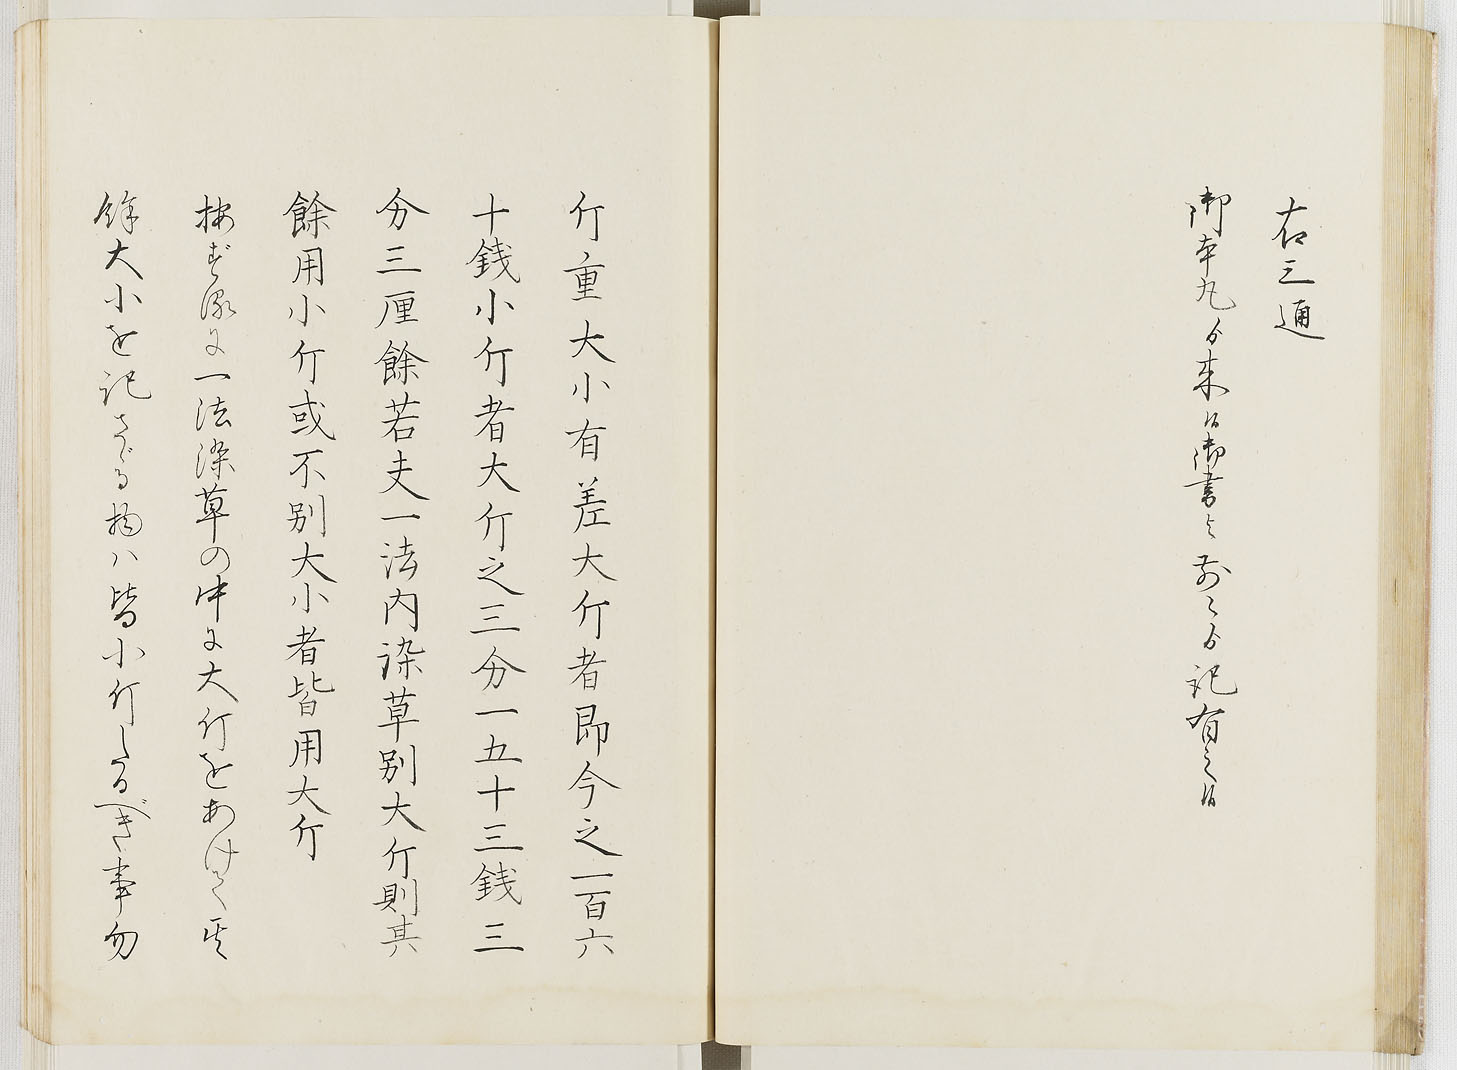 右三通
御本丸ゟ来候御書と前々ゟ記有之候
斤重大小有差大斤者即今之一百六
十銭小斤者大斤之三分一五十三銭三
分三厘餘若夫一法内染草別大斤則其
餘用小斤或不別大小者皆用大斤
按ずるに一法染草の中に大斤をあけて其
餘大小を記さゞる物ハ皆小斤しるべき事勿